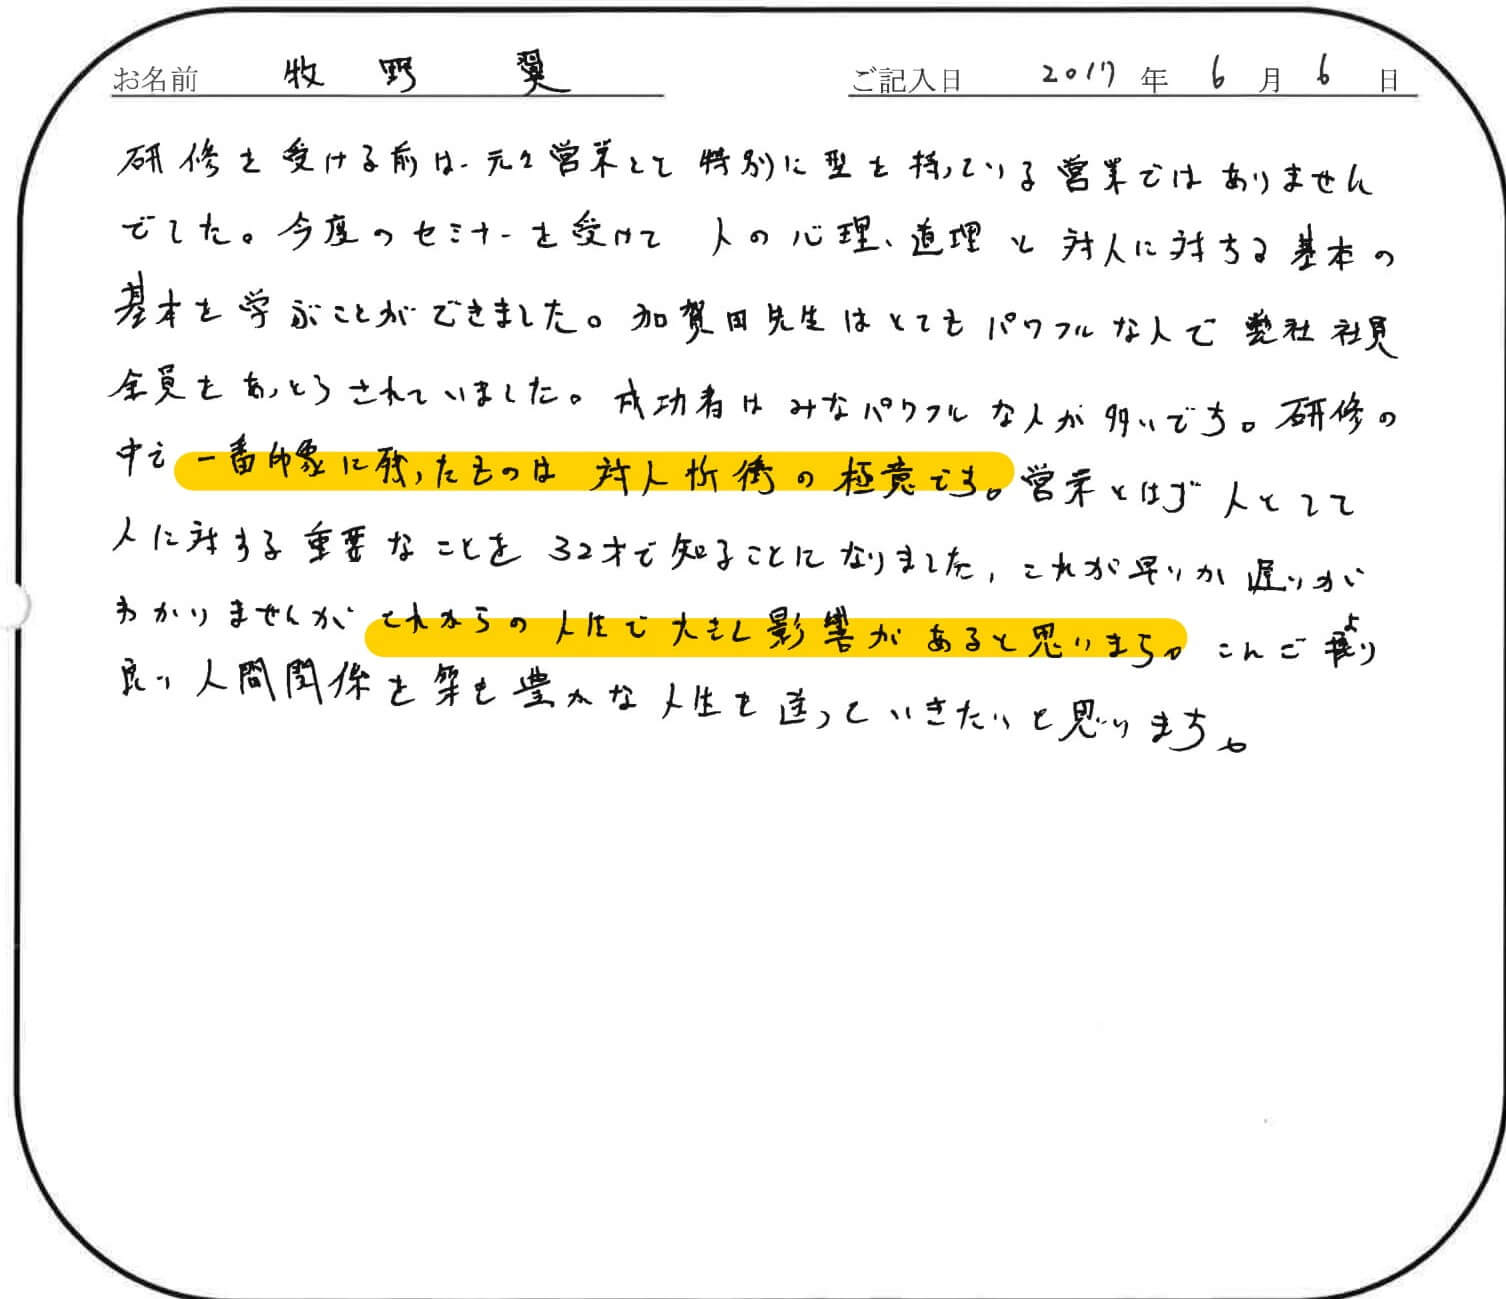 お名前 牧野 翼 ご記入日 2017年 6月 6日
研修を受ける前は元々営業とと特別に型を持っている営業ではありません
でした。今度のセミナーを受けて 人の心理、道理と対人に対する基本の
基本を学ぶことができました。加賀田先生はとてもパワフルな人で弊社社員
全員をあっとうされていました。成功者はみなパワフルな人が多いです。研修の
中で一番印象に残ったものは 対人折衝の極意です。営業とはず人として
人に対する重要なことを32才で知ることになりました、これが早いか遅いか
わかりませんがこれからの人生で大きく影響があると思います。こんごより
良い人間関係を築き豊かな人生を送っていきたいと思います。